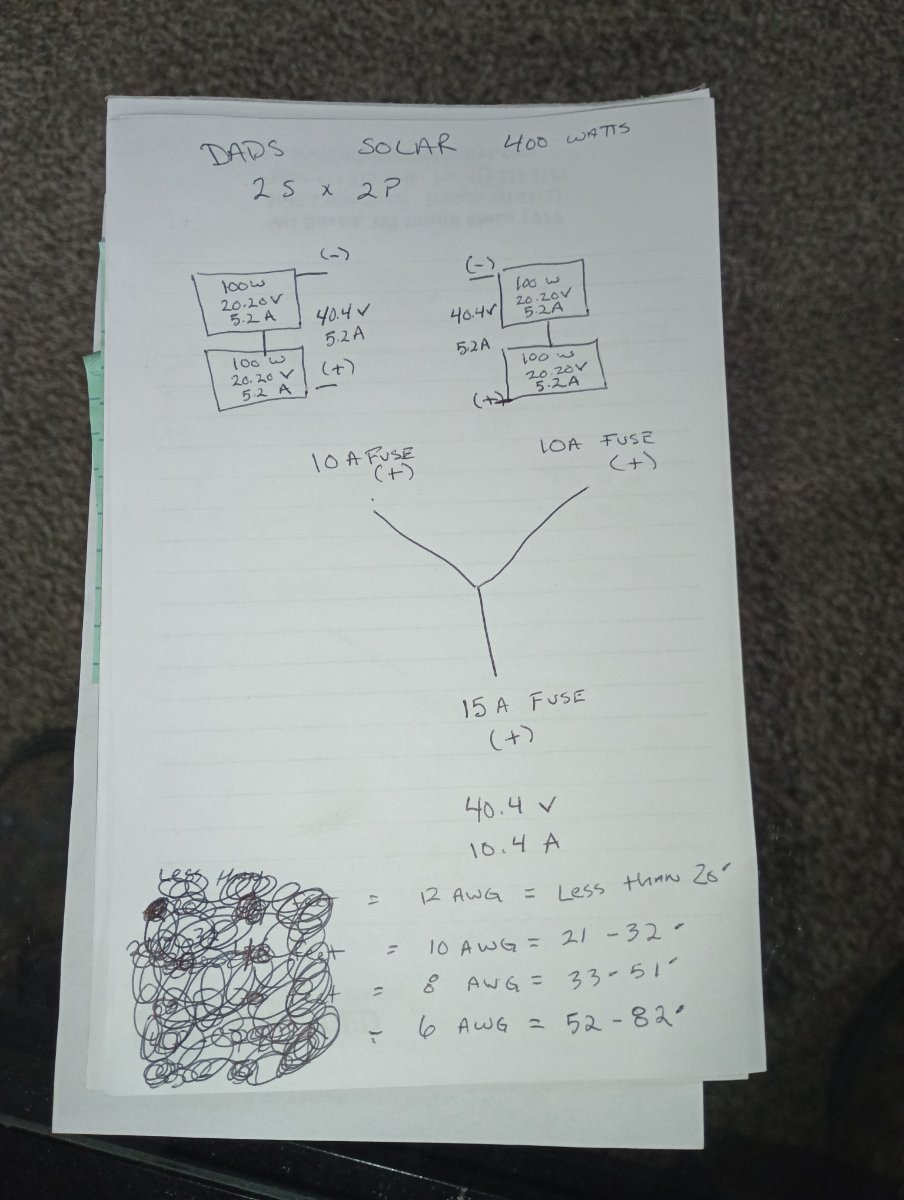 DADS SOLAR 400 WATTS
2S x 2P
(-)
100W
20.20V
5.2A
40.4V
5.2A
100W
20.20V
5.2 A
(+)
(-)
100 W
20.20V
5.2A
40.4V
5.2A
100 W
20.20V
5.2A
(+)
10 A FUSE
(+)
10A FUSE
(+)
15A FUSE
(+)
40.4 V
10.4 A
= 12 AWG = Less than 20'
= 10 AWG = 21 - 32'
= 8 AWG = 33 - 51'
= 6 AWG = 52 - 82'